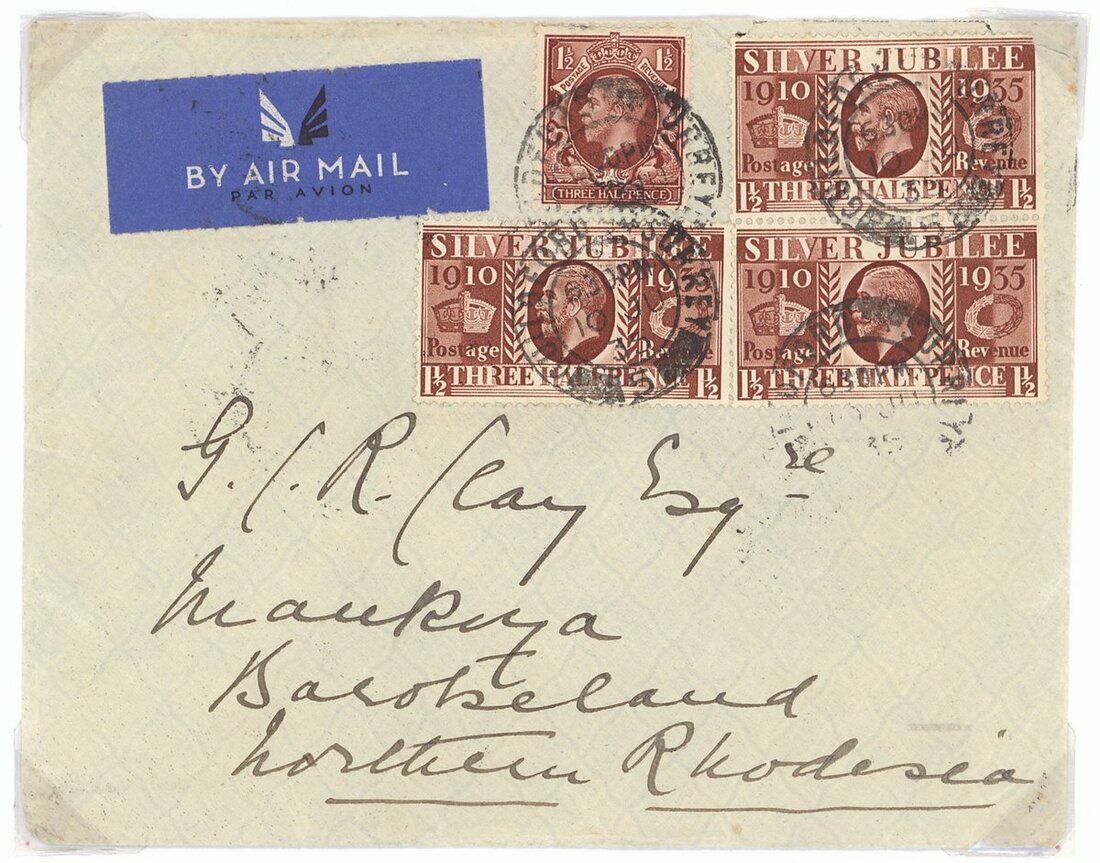 BY AIR MAIL
PAR AVION
1½ 1½
POSTAGE REVENUE
THREE HALFPENCE
SILVER JUBILEE
1910 1935
Postage Revenue
1½ THREE HALFPENCE 1½
SILVER JUBILEE
1910 19
Postage Revenue
1½ THREE HALFPENCE 1½
630PM
10 JU
35
SILVER JUBILEE
1910 1935
Postage Revenue
1½ THREE HALFPENCE 1½
G. C. R. Clay Esqre
Mankoya
Barotseland
Northern Rhodesia